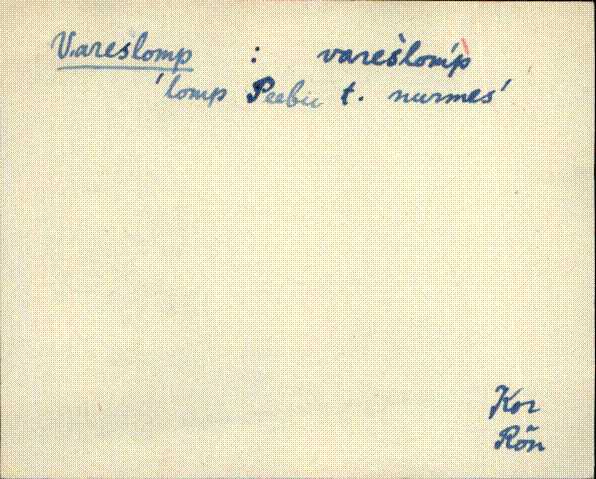 Vareslomp : vareslomp
'lomp Peebu t. nurmes'
Kor
Rõn